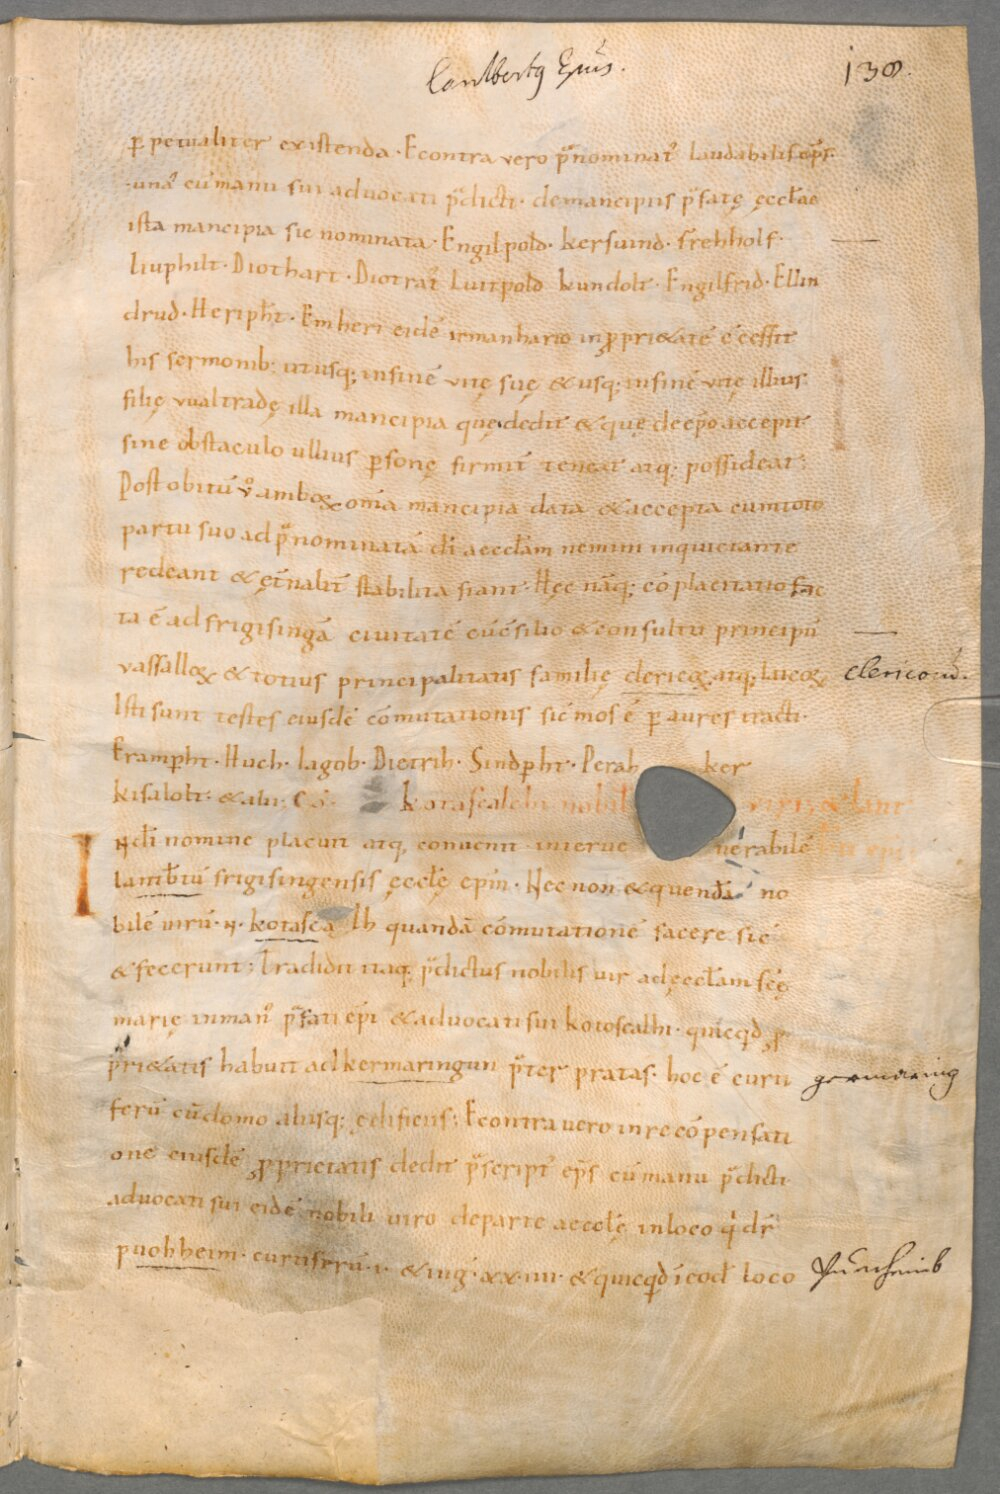 Lantbertus Epūs.
138.
ꝑpetualiter existenda. Econtra vero p̄nominat᷒ laudabilis ep̄s.
una cū manu sui advocati p̄dicti. de mancipiis p̄fatę ęccłae
ista mancipia sic nominata. Engilpold. kersuind. frehholf.
liuphilt. Diothart. Diotrat᷒ Luitpold kundolt. Engilfrid. Ellin
drud. Heripħt. Emheri eidē irmanhario in ꝓprietatē c̄cessit
his sermonib; utusq; in finē vitę suę &usq; in finē vitę illius
filię vualtradę illa mancipia quę dedit & quę de ep̄o accepit
sine obstaculo ullius ꝑsonę firmit̄ teneat atq; possideat.
Post obitū v̊ amboꝝ om̄a mancipia data & accepta cum toto
partu suo ad p̄nominatā dī aeccłam nemini inquietante
redeant & ęt̄nalit̄ stabilita fiant. Hęc nāq; cōplacitatio fac
ta ē ad frigisingā civitatē cū c̄silio & consultu principū
vassalloꝝ & totius principalitatis familię clericoꝝ atq; laicoꝝ
clericorū.
Isti sunt testes eiusdē cōmutationis sic mos ē ꝑ aures tracti.
Erampħt. Huch. Iagob. Dietrih. Sindpħt. Perah ker
kisalolt. & alii. Cō. kotascalchi nobil viri, & lant
In dī nomine placuit atq; convenit inter ve nērabilē
lantb̄tū frigisingensis ęccłę epm̄. Nec non & quendā no
bilē virū. N. kotasca lh quandā cōmutationē facere sic
& fecerunt; Tradidit itaq; p̄dictus nobilis vir ad ęccłam scę̄
marię in man᷒ p̄fati ep̄i & advocati sui kotoscalhi. quicqđ ꝓ
prietatis habuit ad kermaringun p̄ter pratas. hoc ē curti
germaring
ferū cū domo aliisq; ędificiis; Econtra vero in recōpensati
one eiusdē ꝓprietatis dedit p̄script᷒ ep̄s cū manu p̄dicti
advocati sui eidē nobili viro de parte aecclę in loco q̄ dr̄
puohheim. curtiferū. i. & iug̅. xx. iiii. & quicqđ ī eođ loco